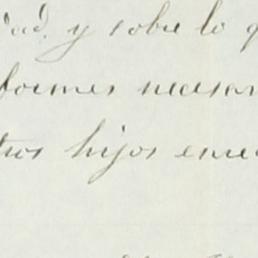 dad, y sobre lo q
formes necesar
tros hijos ence